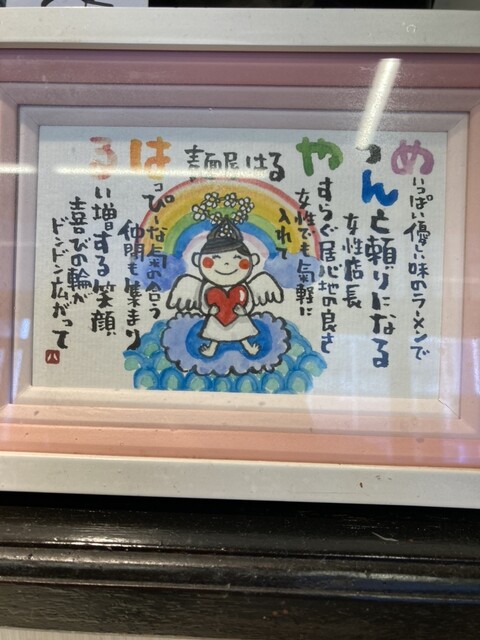 めいっぱい優しい味のラーメンで
うんと頼りになる
女性店長
やすらぐ居心地の良さ
女性でも氣軽に
入れて
麺屋はる
はっぴーな氣の合う
仲間も集まり
るい増する笑顔
喜びの輪が
ドンドン広がって
八